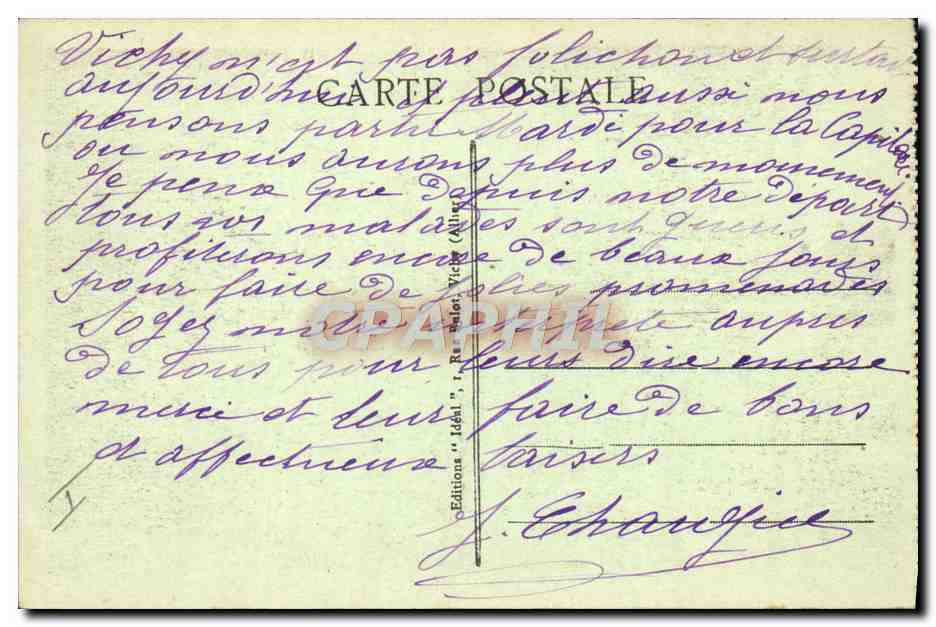 Vichy n'est pas folichon et surtout
CARTE POSTALE
aujourd'hui il pleut aussi nous
pensons partir Mardi pour la Capitale.
ou nous aurons plus de mouvement
Je pense que depuis notre départ
tous vos malades sont gueris et
profiterons encore de beaux jours
pour faire de jolies promenades
Soyez notre interprete aupres
de tous pour leurs dire encore
merci et leur faire de bons
et affectueux baisers
Editions "Idéal", 1, Rue Vichy (Allier)
CPAPHIL
I